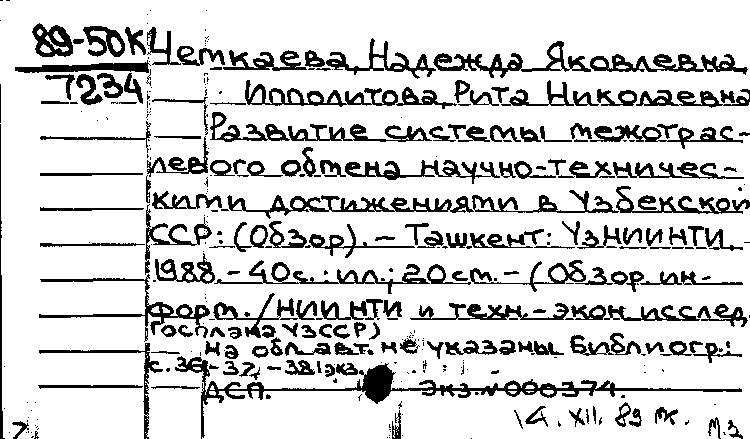 89-50К Четкаева, Надежда Яковлевна,
7234 Ипполитова, Рита Николаевна
Развитие системы межотрас-
левого обмена научно-техничес-
кими достижениями в Узбекской
ССР: (Обзор). - Ташкент: УзНИИНТИ,
1988. - 40с.: ил.; 20 см. - (Обзор. ин-
форм. / НИИНТИ и техн.-экон. исслед.
Госплана УзССР)
На обл. авт. не указаны. Библиогр.:
с. 36-37, - 381 экз.
ДСП. Экз. № 000374.
14. XII. 89
М.З